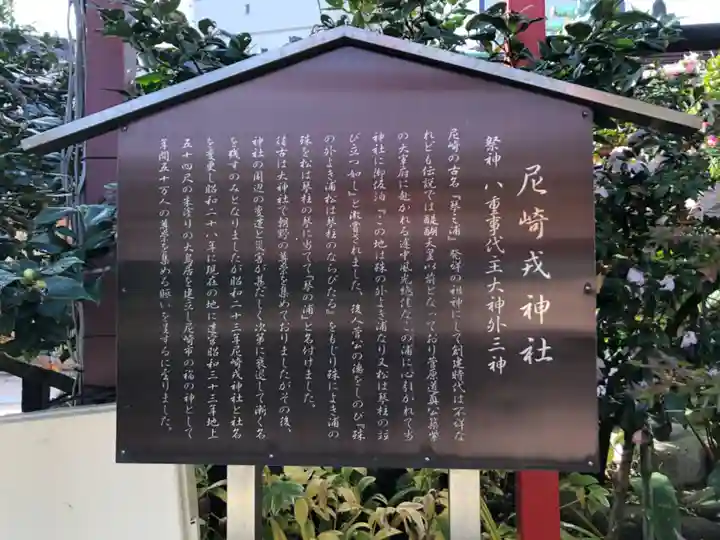 尼崎戎神社
祭神　八重事代主大神外三神
尼崎の古名『琴之浦』発祥の祖神にして創建時代は不詳な
れども伝説では醍醐天皇以前となっており菅原道真公築紫
の大宰府に赴かれる途中風光絶佳なこの浦に心引かれて当
神社に御仮泊『この地は殊の外よき浦なり又松は琴柱の如
び立つ如し』と激賞されました、後人菅公の徳をしのび『殊
の外よき浦松は琴柱のならびたる』をもじり殊によき浦の
殊を松は琴柱の琴に当てて「琴の浦」と名付けました。
往古は大神社で朝野の尊崇を集めておりましたがその後、
神社の周辺の変遷と災害が甚だしく次第に衰退して漸く名
を残すのみとなりましたが昭和二十三年尼崎戎神社と社名
を変更し昭和二十八年に現在の地に遷宮昭和三十三年地上
五十四尺の朱塗りの大鳥居を建立し尼崎市の福の神として
年間五十万人の尊崇を集める賑いを呈するになりました。